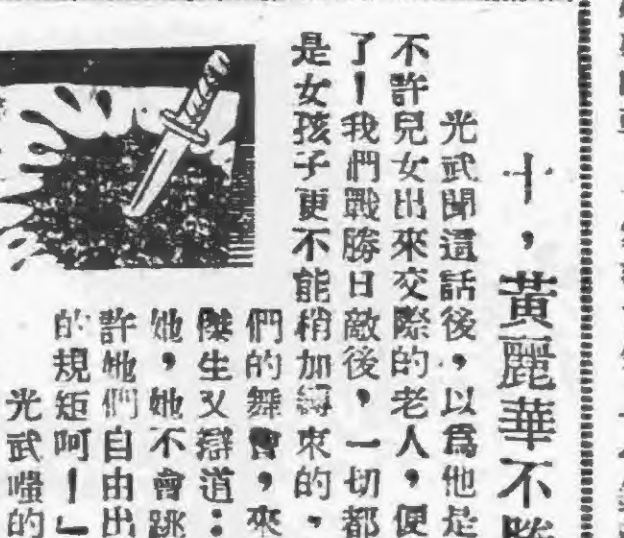 十，黃麗華不勝
光武聞這話後，以爲他是
不許兒女出來交際的老人，便
了！我們戰勝日敵後，一切都
是女孩子更不能稍加縛束的，
們的舞會，來
傑生又辯道：
她，她不會跳
許她們自由出
的規矩呵！」
光武嗤的